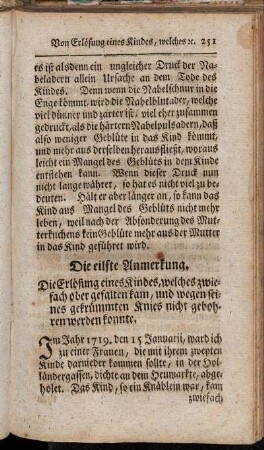 Von Erlösung eines Kindes, welches ꝛc. 251
es ist alsdenn ein ungleicher Druck der Na-
beladern allein Ursache an dem Tode des
Kindes. Denn wenn die Nabelschnur in die
Enge kömmt, wird die Nabelblutader, welche
viel dünner und zarter ist, viel eher zusammen
gedruckt, als die härtern Nabelpulsadern, daß
also weniger Geblüte in das Kind kömmt,
und mehr aus derselben heraus fließt, woraus
leicht ein Mangel des Geblüts in dem Kinde
entstehen kann. Wenn dieser Druck nun
nicht lange währet, so hat es nicht viel zu be-
deuten. Hält er aber länger an, so kann das
Kind aus Mangel des Geblüts nicht mehr
leben, weil nach der Absonderung des Mut-
terkuchens kein Geblüte mehr aus der Mutter
in das Kind geführet wird.
Die eilfte Anmerkung.
Die Erlösung eines Kindes, welches zwie-
fach ober gefalten kam, und wegen sei-
nes gekrümmten Knies nicht geboh-
ren werden konnte.
Im Jahr 1719. den 15 Januarii, ward ich
zu einer Frauen, die mit ihrem zweyten
Kinde darnieder kommen sollte, in der Hol-
ländergassen, dichte an dem Heumarkte, abge-
holet. Das Kind, so ein Knäblein war, kam
zwiefach